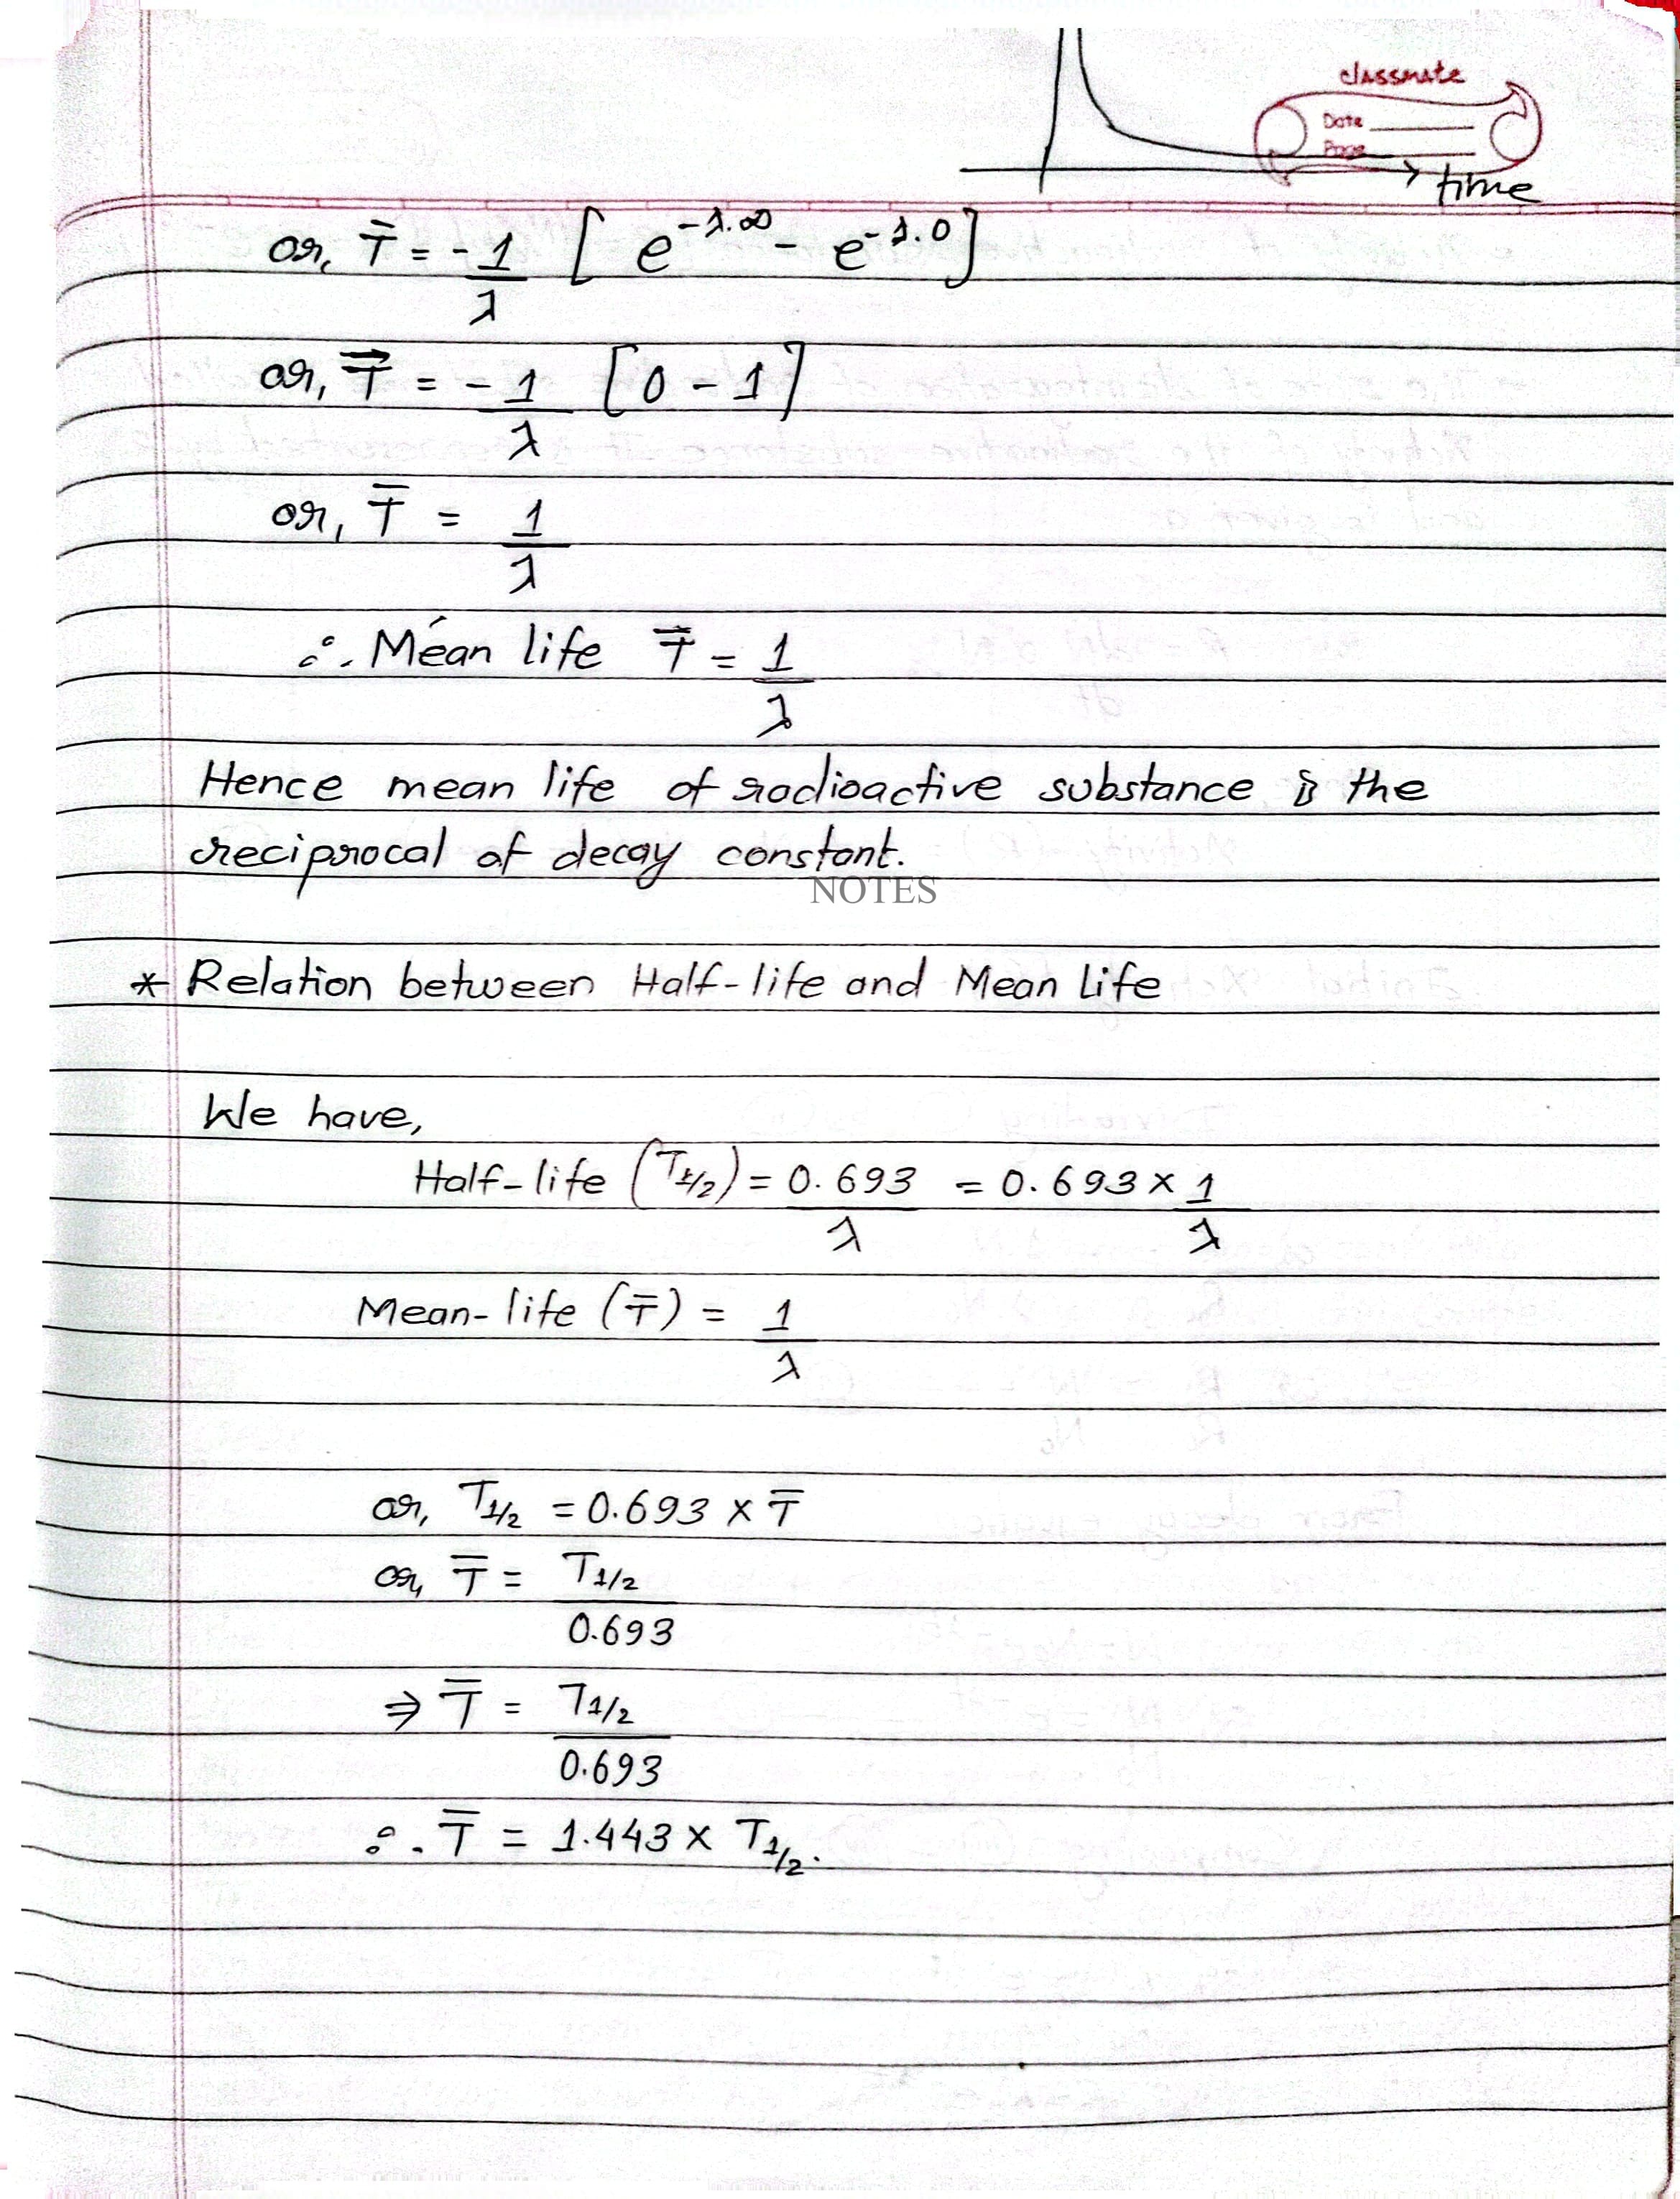 classmate
Date
Page
time
or, T̄ = -1/λ [ e^{-λ.∞} - e^{-λ.0} ]
or, T̄ = -1/λ [ 0 - 1 ]
or, T̄ = 1/λ
∴ Mean life T̄ = 1/λ
Hence mean life of radioactive substance is the
reciprocal of decay constant.
NOTES
* Relation between Half-life and Mean Life
We have,
Half-life (T1/2) = 0.693/λ = 0.693 × 1/λ
Mean-life (T̄) = 1/λ
or, T1/2 = 0.693 × T̄
or, T̄ = T1/2 / 0.693
⇒ T̄ = T1/2 / 0.693
∴ T̄ = 1.443 × T1/2.